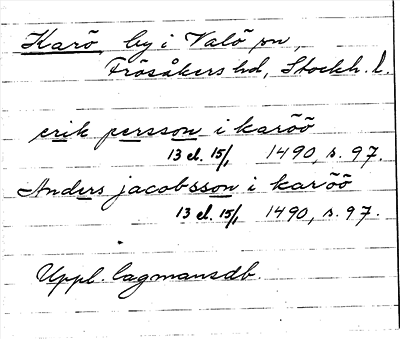 Karö, by i Valö sn,
Frösåkers hd, Stockh. l.
erik persson i karöö
13 el. 15/1 1490, s. 97.
Anders jacobsson i karöö
13 el. 15/1 1490, s. 97.
Uppl. lagmansdb.